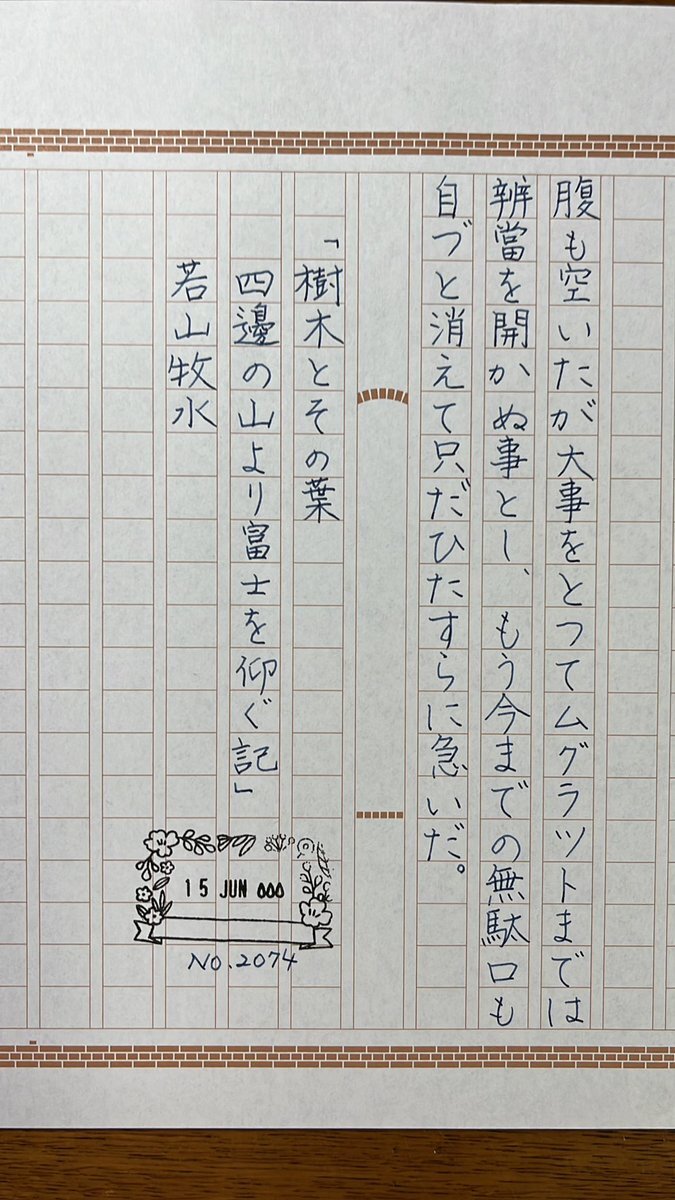 腹も空いたが大事をとつてムグラツトまでは
辨當を開かぬ事とし、もう今までの無駄口も
自づと消えて只だひたすらに急いだ。
「樹木とその葉
四邊の山より富士を仰ぐ記」
若山牧水
15 JUN
NO.2074